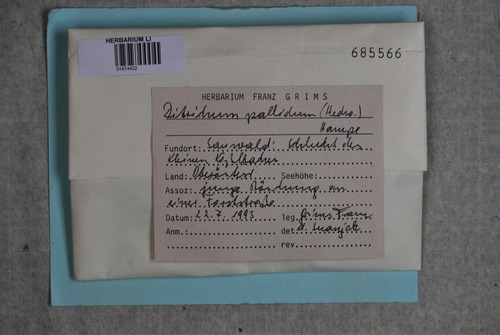 HERBARIUM LI
685566
HERBARIUM FRANZ GRIMS
Ditrichum pallidum (Hedw.)
Hampe
Fundort: Sauwald: Schlucht des
Kleinen Kößlbaches
Land: Oberösterr. Seehöhe:
Assoz: junge Böschung an
einer Forststraße
Datum: 22.7.1993 leg. Grims Franz
Anm.: det.
rev.